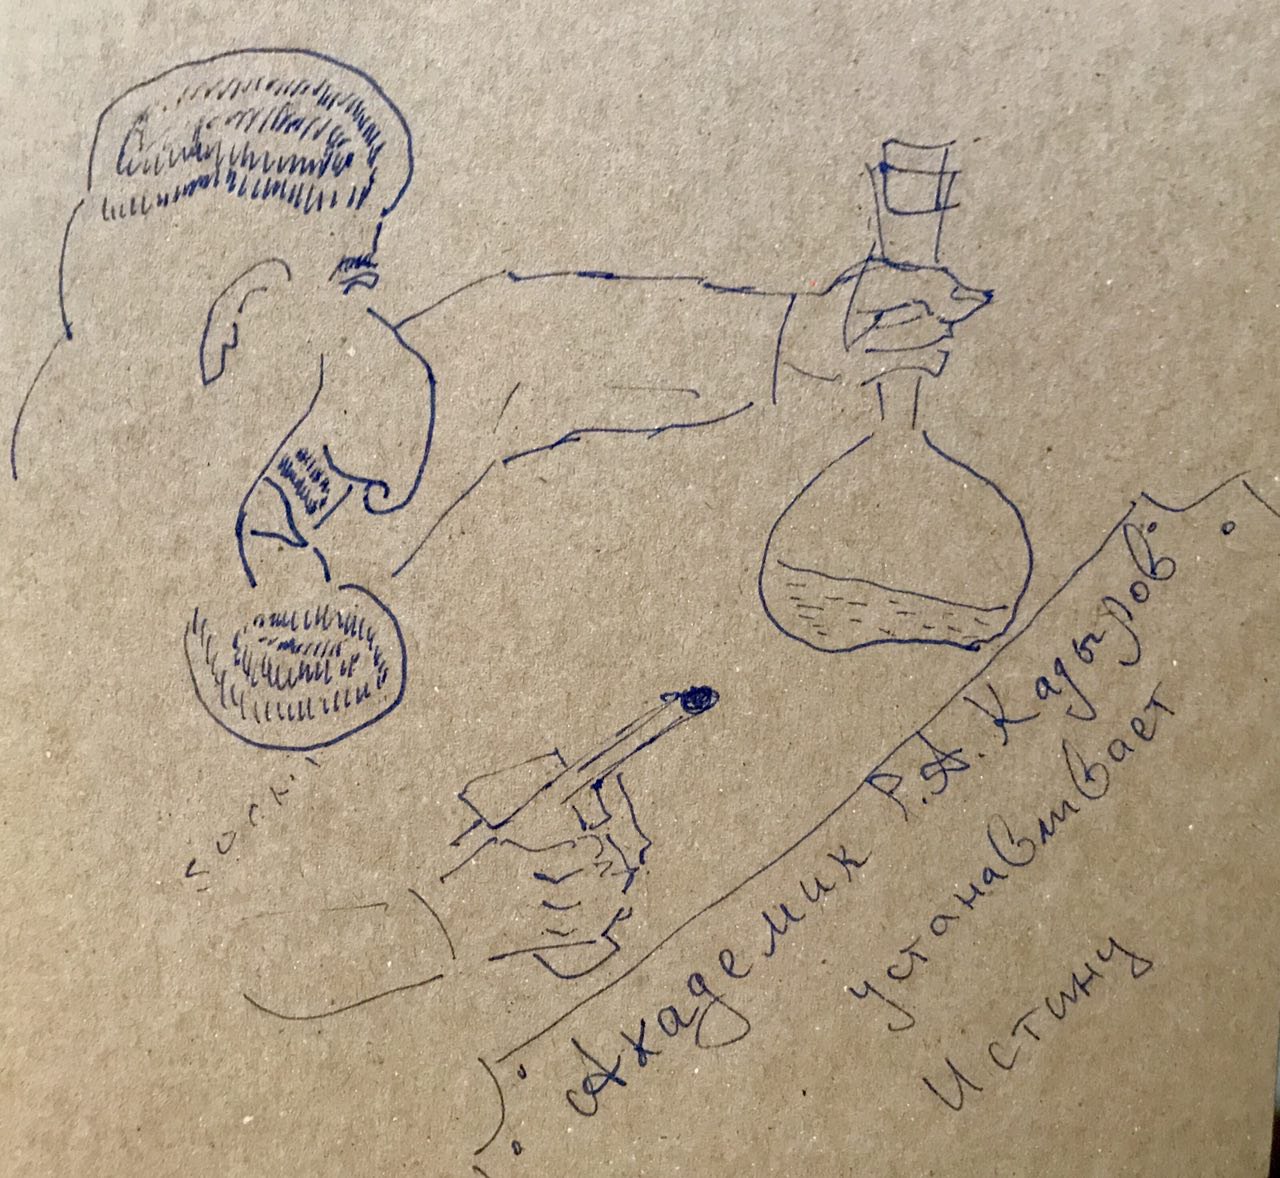 Академик Р.А. Кадыров
устанавливает
Истину